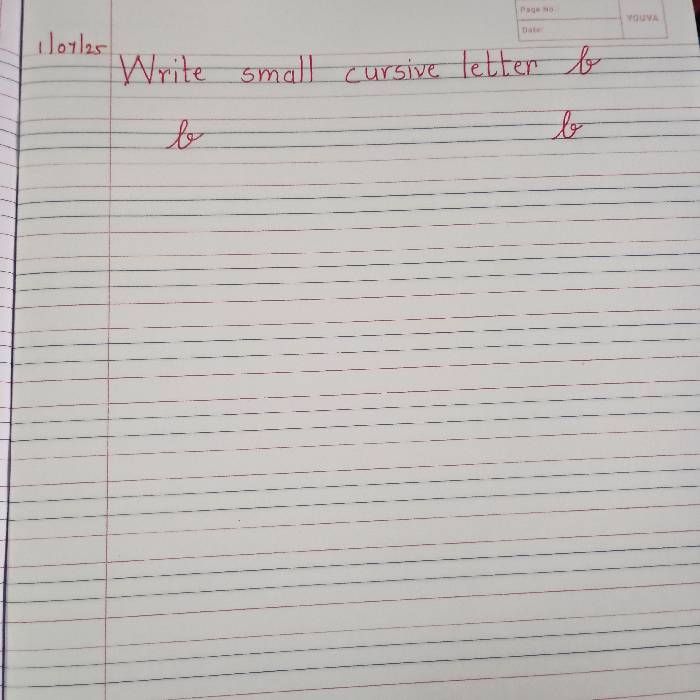 Page No.
Date:
YOUVA
1/07/25
Write small cursive letter b
b b